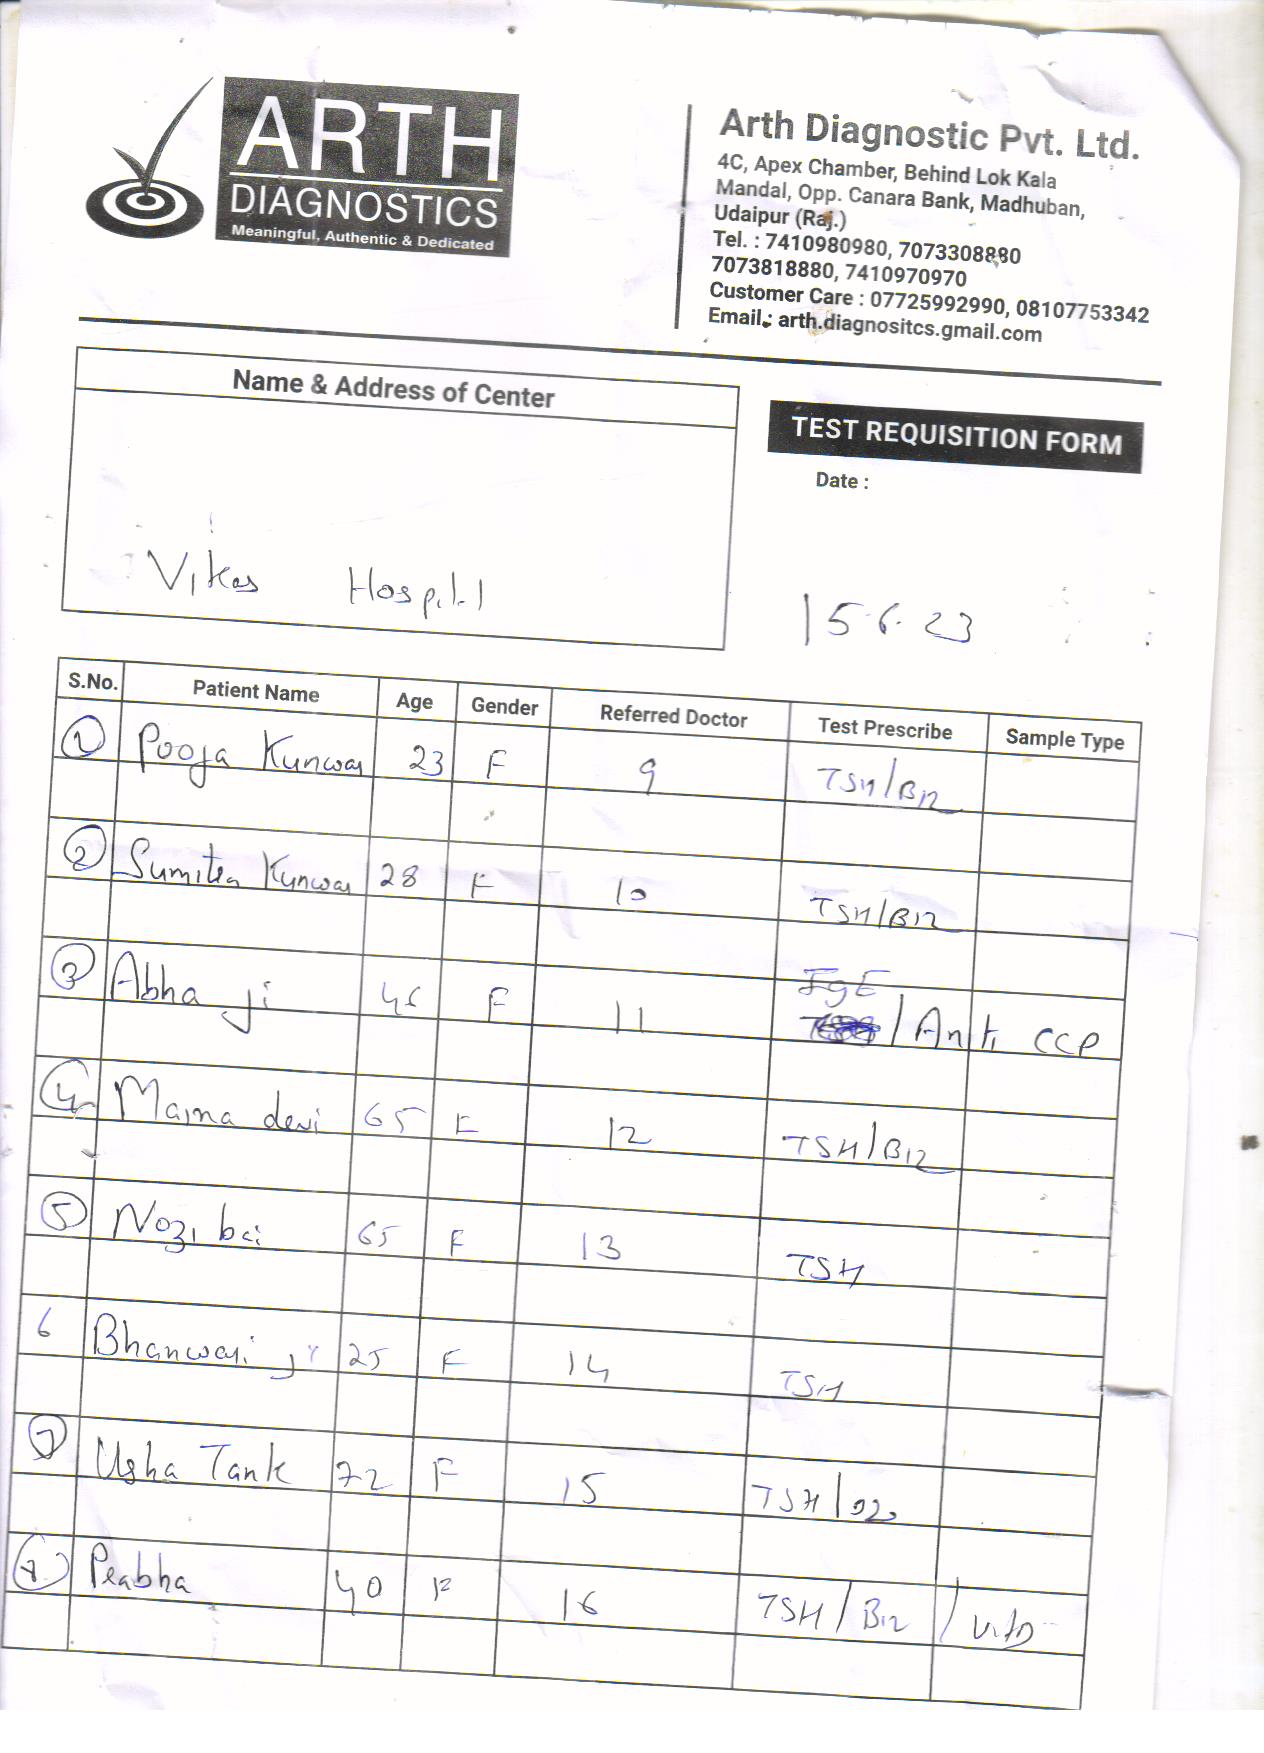 ARTH
DIAGNOSTICS
Meaningful, Authentic & Dedicated
Arth Diagnostic Pvt. Ltd.
4C, Apex Chamber, Behind Lok Kala
Mandal, Opp. Canara Bank, Madhuban,
Udaipur (Raj.)
Tel. : 7410980980, 7073308880
7073818880, 7410970970
Customer Care : 07725992990, 08107753342
Email.: arth.diagnositcs.gmail.com
Name & Address of Center
Vikas Hospital
TEST REQUISITION FORM
Date :
15.6.23
S.No. Patient Name Age Gender Referred Doctor Test Prescribe Sample Type
1 Pooja Kunwar 23 F 9 TSH/B12
2 Sumitra Kunwar 28 F 10 TSH/B12
3 Abha ji 46 F 11 IgE / Anti CCP
4 Mamna devi 65 F 12 TSH/B12
5 Nozi bai 65 F 13 TSH
6 Bhanwari ji 25 F 14 TSH
7 Usha Tank 72 F 15 TSH /
7 Prabha 40 F 16 TSH / B12 / vitD